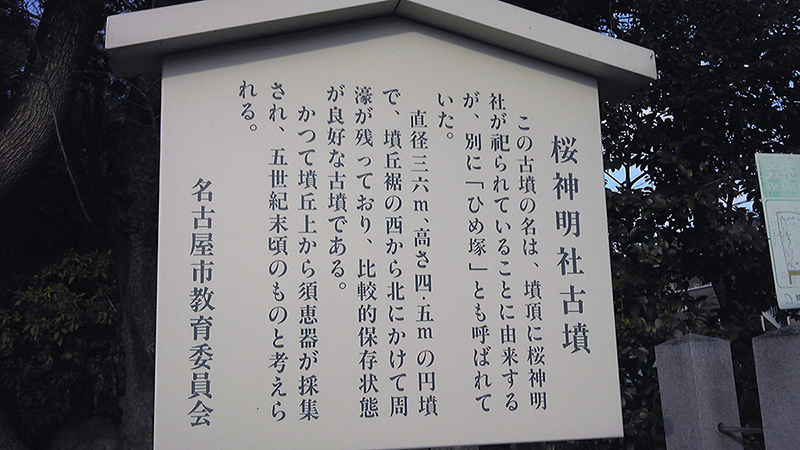 桜神明社古墳
この古墳の名は、墳頂に桜神明
社が祀られていることに由来する
が、別に「ひめ塚」とも呼ばれて
いた。
直径三六m、高さ四・五mの円墳
で、墳丘裾の西から北にかけて周
濠が残っており、比較的保存状態
が良好な古墳である。
かつて墳丘上から須恵器が採集
され、五世紀末頃のものと考えら
れる。
名古屋市教育委員会